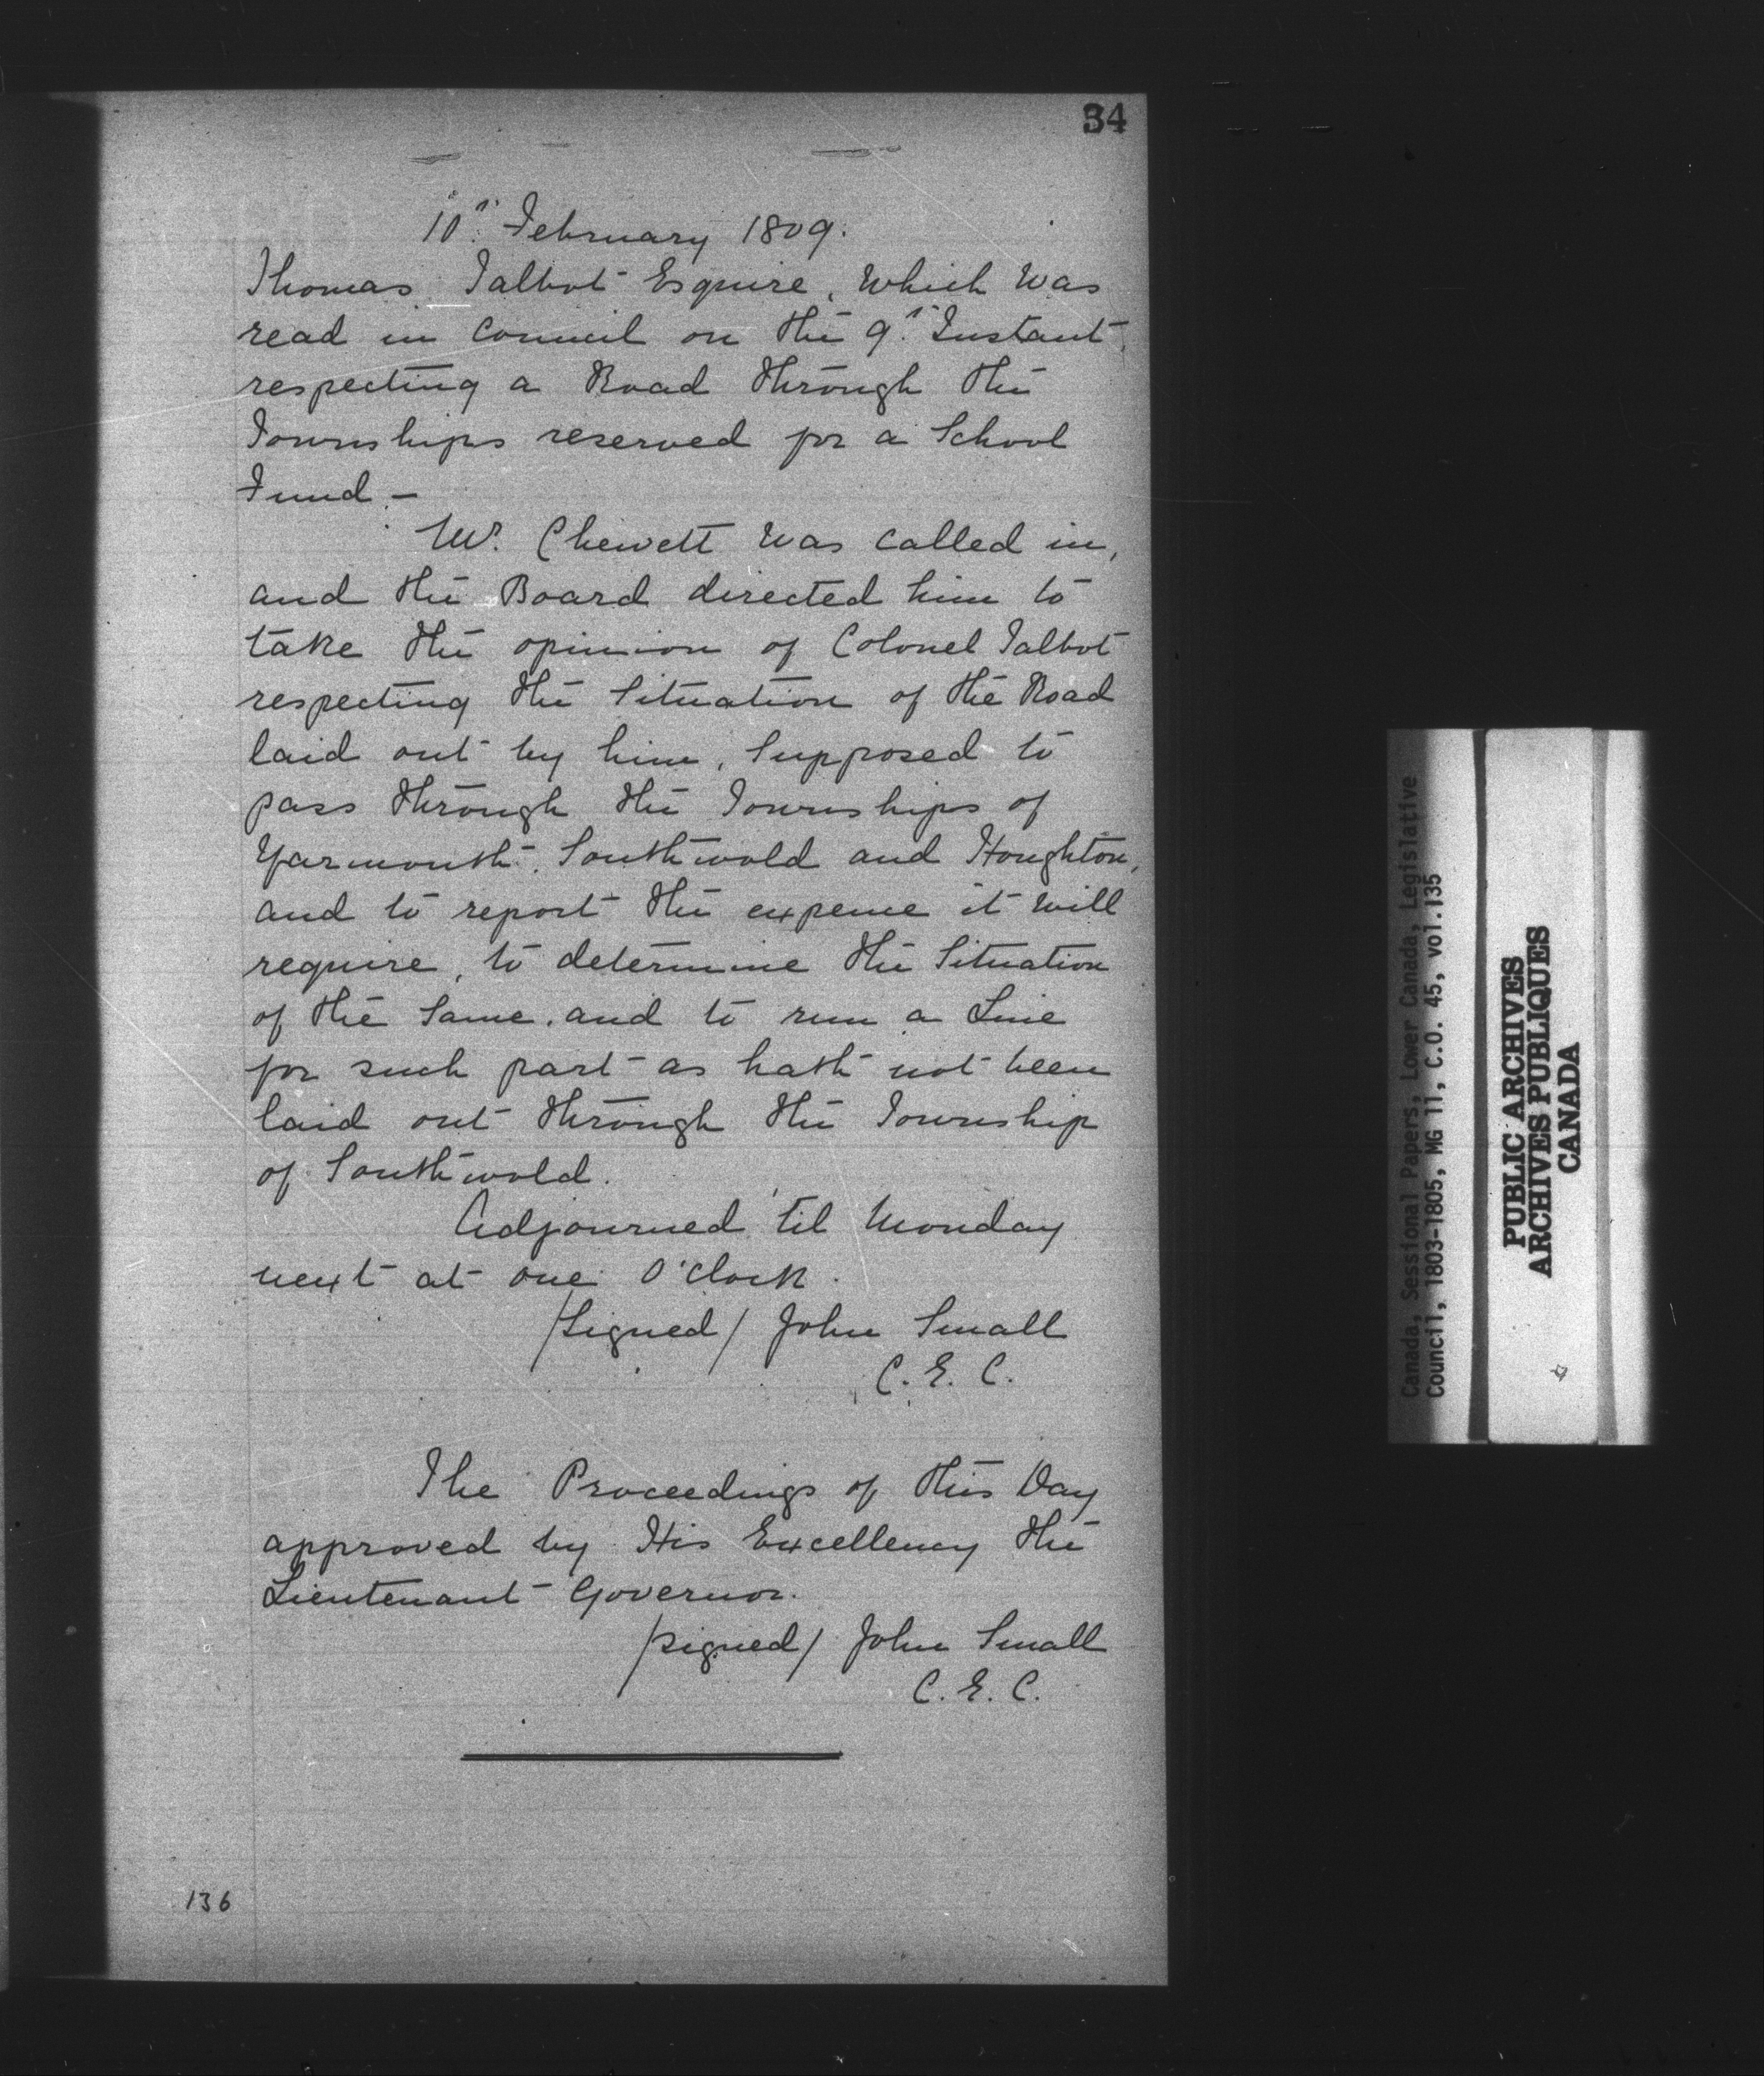 34
10th. February 1809.
Thomas Talbot Esquire, which was
read in Council on the 9th. Instant,
respecting a Road through the
Townships reserved for a School
Fund. —
Mr. Chewett was called in,
and the Board directed him to
take the opinion of Colonel Talbot
respecting the Situation of the Road
laid out by him, Supposed to
pass through the Townships of
Yarmouth, Southwold and Houghton,
and to report the expense it will
require, to determine the Situation
of the Same, and to run a Line
for such part as hath not been
laid out through the Township
of Southwold.
Adjourned 'til Monday
next at one O'Clock.
/Signed/ John Small
C. E. C.
The Proceedings of this Day
approved by His Excellency the
Lieutenant Governor.
/signed/ John Small
C. E. C.
136
Canada, Sessional Papers, Lower Canada, Legislative
Council, 1803-1805, MG 11, C.O. 45, vol.135
PUBLIC ARCHIVES
ARCHIVES PUBLIQUES
CANADA